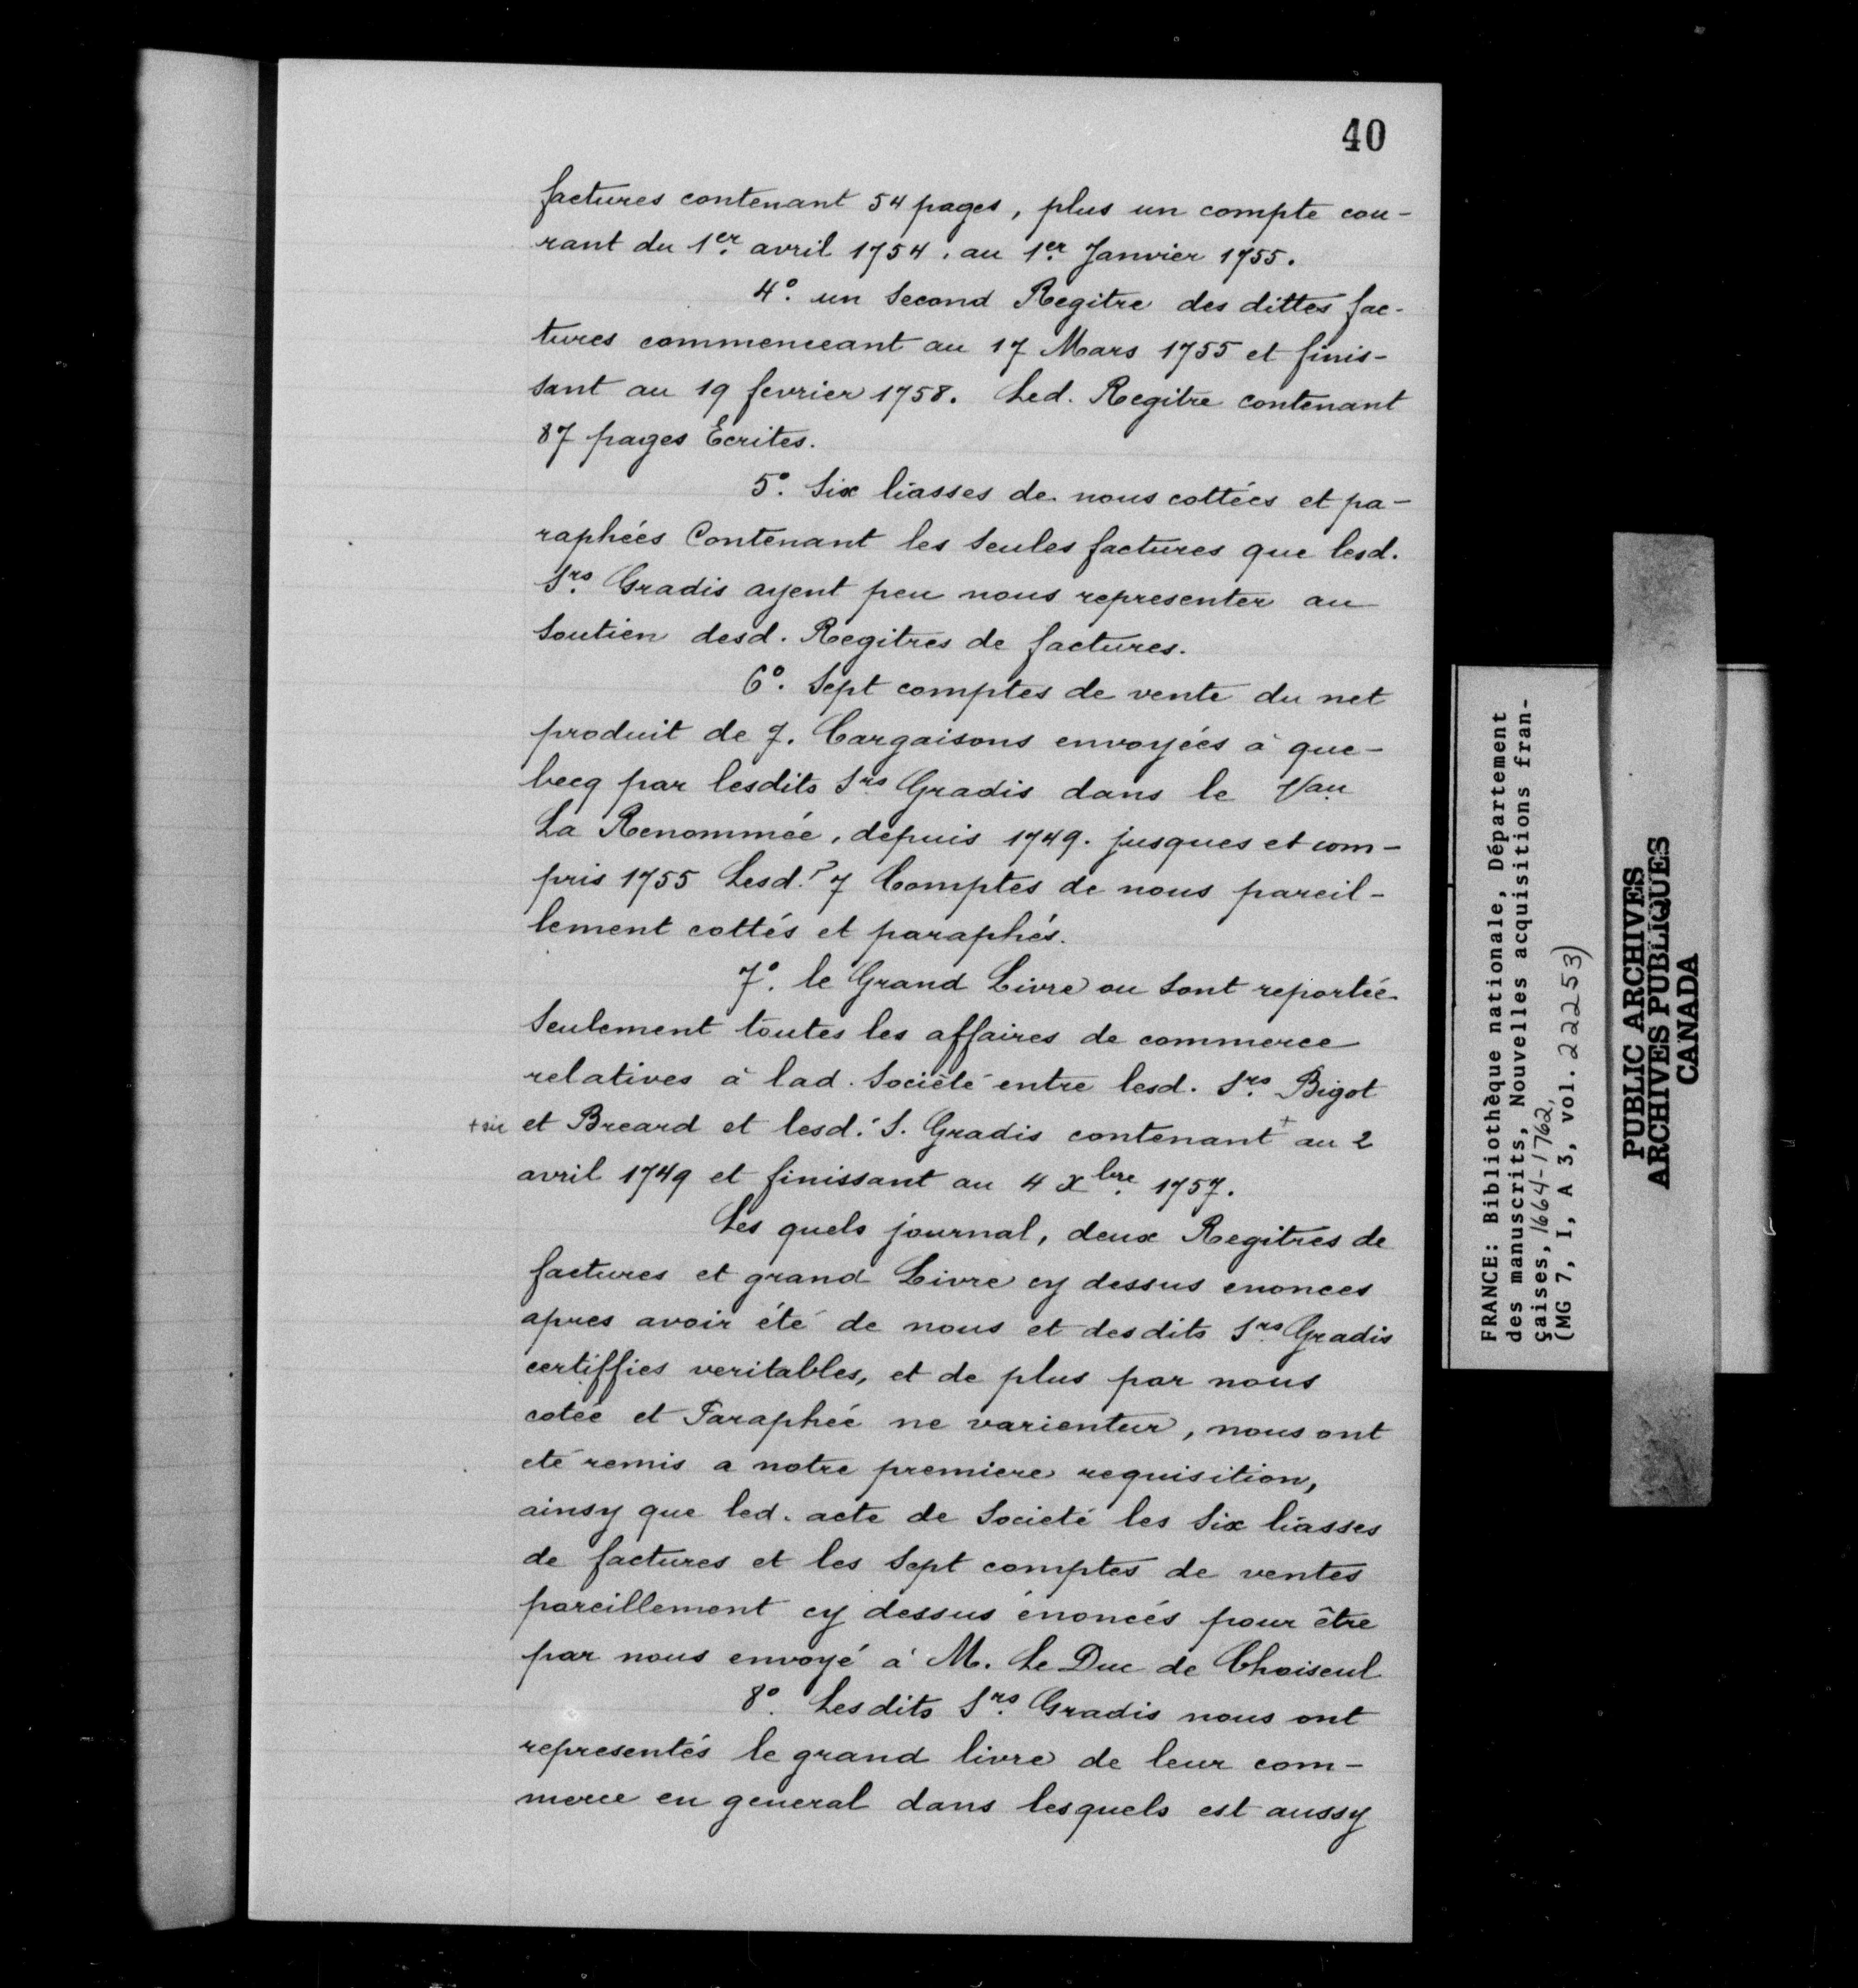 40
factures contenant 54 pages, plus un compte cou-
rant du 1er. avril 1754. au 1er. Janvier 1755.
4°. un Second Regitre des dittes fac-
tures commenceant au 17 Mars 1755 et finis-
sant au 19 fevrier 1758. Led. Regitre contenant
87 pages Ecrites.
5°. Six liasses de nous cottées et pa-
raphées Contenant les Seules factures que lesd.
Srs. Gradis ayent peu nous representer au
Soutien desd. Regitres de factures.
6°. Sept comptes de vente du net
produit de 7. Cargaisons envoyées à que-
becq par lesdits Srs Gradis dans le Vau
La Renommée, depuis 1749. jusques et com-
pris 1755 Lesd. 7 Comptes de nous pareil-
lement cottés et paraphés.
7°. le Grand Livre ou Sont reportée
Seulement toutes les affaires de commerce
relatives à lad. Société entre lesd. Srs. Bigot
+ sic et Breard et lesd. S. Gradis contenant + au 2
avril 1749 et finissant au 4 Xbre. 1757.
Les quels journal, deux Regitres de
factures et grand Livre cy dessus enonces
apres avoir été de nous et desdits Srs. Gradis
certiffies veritables, et de plus par nous
cotée et Paraphée ne varientur, nous ont
eté remis a notre premiere requisition,
ainsy que led. acte de Societé les Six liasses
de factures et les Sept comptes de ventes
pareillement cy dessus énoncés pour être
par nous envoyé à M. Le Duc de Choiseul
8°. Lesdits Srs. Gradis nous ont
representés le grand livre de leur com-
merce en general dans lesquels est aussy
FRANCE: Bibliothèque nationale, Département
des manuscrits, Nouvelles acquisitions fran-
çaises, 1664-1762,
(MG 7, I, A 3, vol. 22253)
PUBLIC ARCHIVES
ARCHIVES PUBLIQUES
CANADA